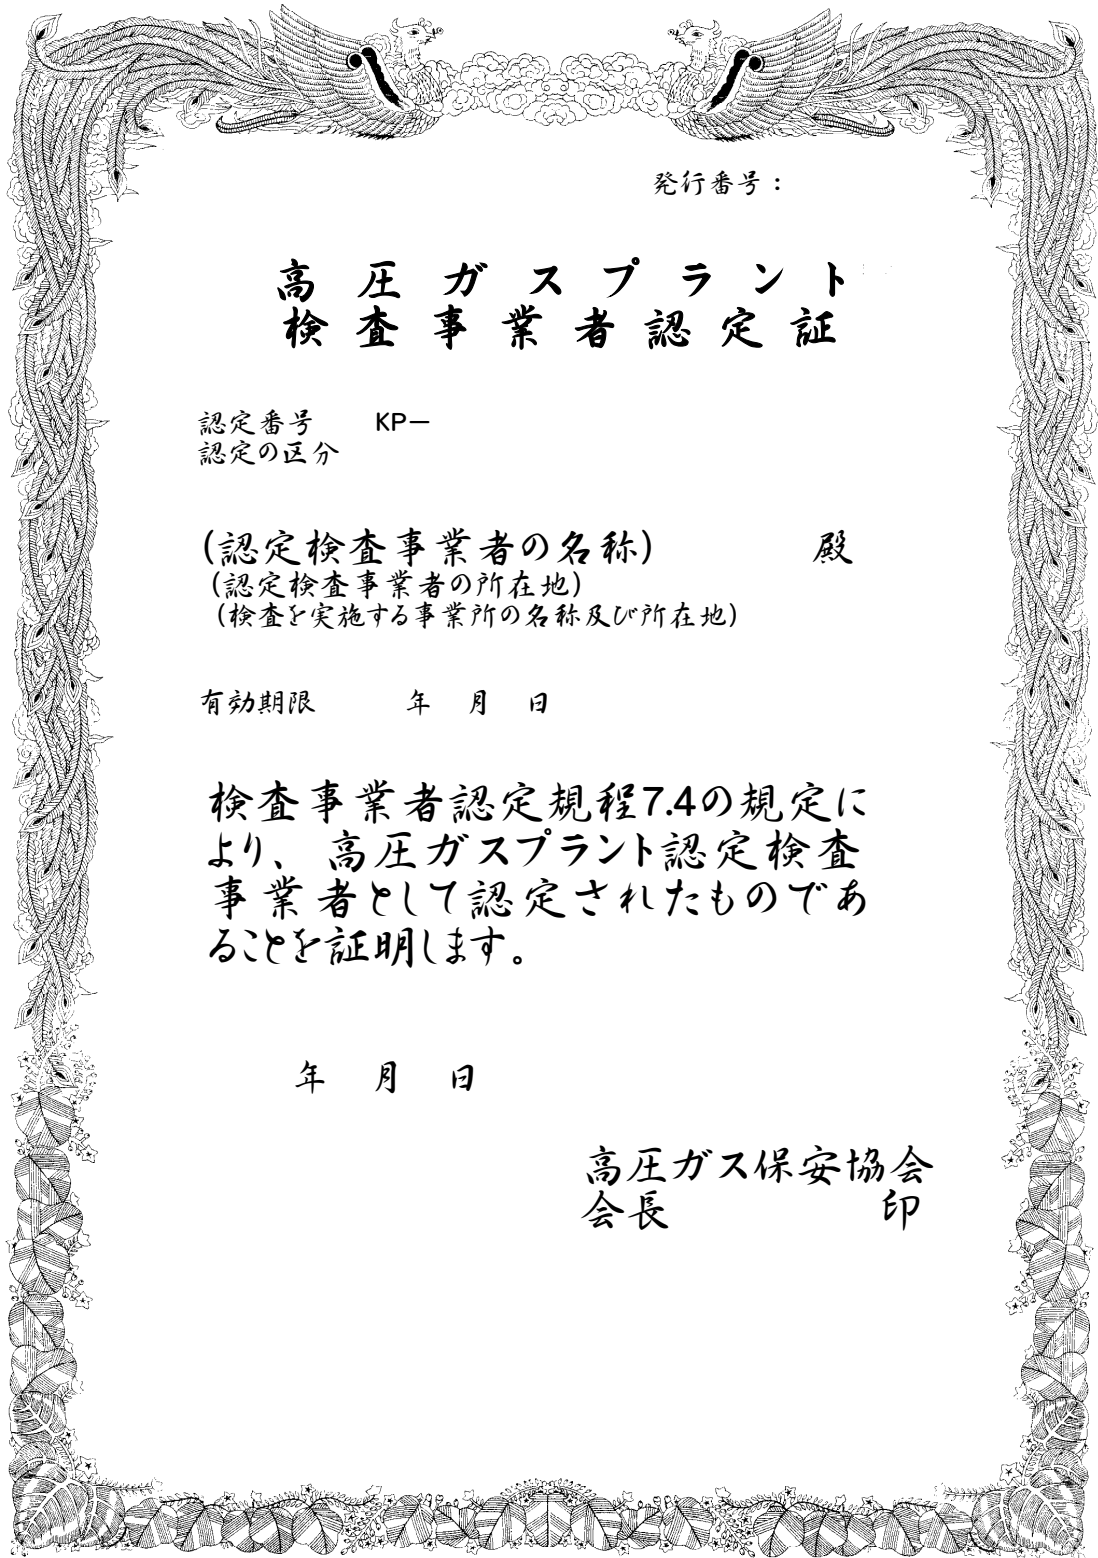 発行番号：
高圧ガスプラント
検査事業者認定証
認定番号　　KP－
認定の区分
（認定検査事業者の名称）　　　　殿
（認定検査事業者の所在地）
（検査を実施する事業所の名称及び所在地）
有効期限　　　年　月　日
検査事業者認定規程7.4の規定に
より、高圧ガスプラント認定検査
事業者として認定されたものであ
ることを証明します。
年　月　日
高圧ガス保安協会
会長　　　　　印